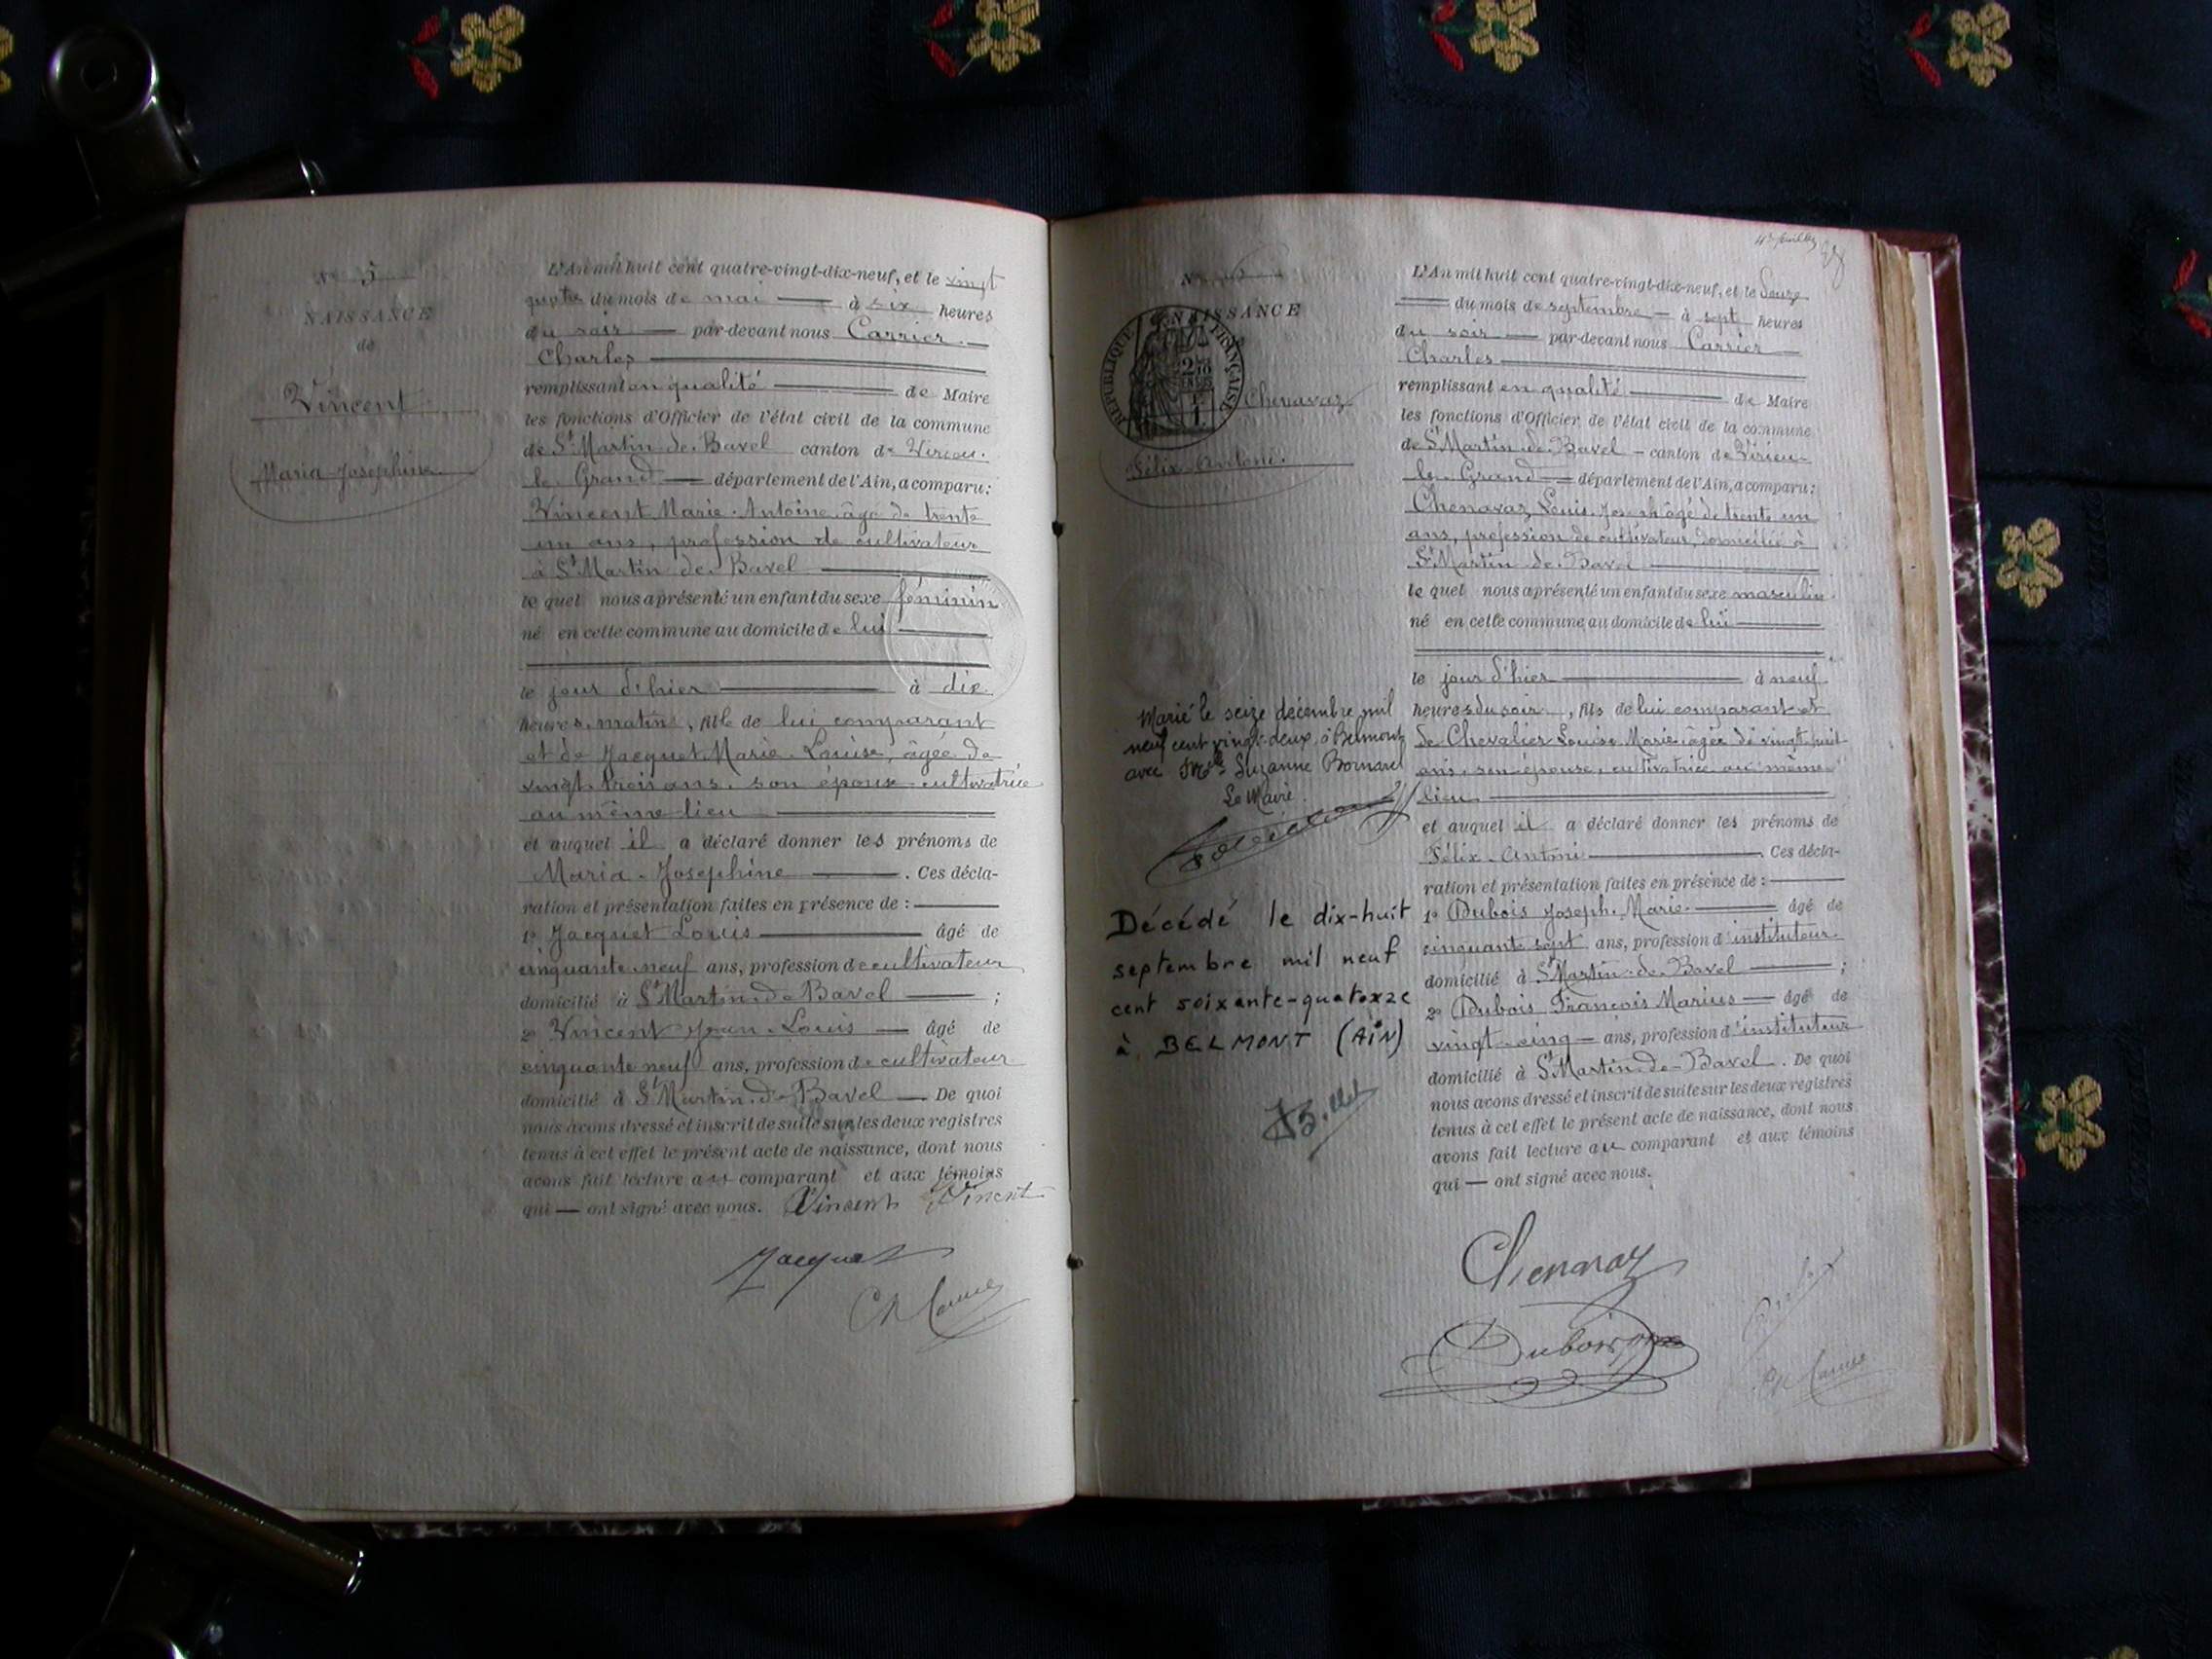 N° 5
NAISSANCE
de
Vincent
Maria-Joséphine
L'An mil huit cent quatre-vingt-dix-neuf, et le vingt
quatre du mois de mai — à six heures
du soir — par-devant nous Carrier
Charles
remplissant en qualité — de Maire
les fonctions d'Officier de l'état civil de la commune
de St Martin-de-Bavel canton de Virieu-
le-Grand — département de l'Ain, a comparu:
Vincent Marie-Antoine âgé de trente
un ans, profession de cultivateur
à St Martin-de-Bavel
lequel nous a présenté un enfant du sexe féminin
né en cette commune au domicile de lui
le jour d'hier — à dix
heures matin, fille de lui comparant
et de Jacquet Marie-Louise, âgée de
vingt trois ans, son épouse cultivatrice
au même lieu
et auquel il a déclaré donner les prénoms de
Maria-Joséphine — . Ces décla-
ration et présentation faites en présence de :
1° Jacquet Louis — âgé de
cinquante-neuf ans, profession de cultivateur
domicilié à St Martin-de-Bavel — ;
2° Vincent Jean-Louis — âgé de
cinquante neuf ans, profession de cultivateur
domicilié à St Martin-de-Bavel — De quoi
nous avons dressé et inscrit de suite sur les deux registres
tenus à cet effet le présent acte de naissance, dont nous
avons fait lecture au comparant et aux témoins
qui — ont signé avec nous. Vincent Vincent
Jacquet
Ch Carrier
N° 6
NAISSANCE
RÉPUBLIQUE FRANÇAISE
Chenavaz
Félix-Antoni
Marié le seize décembre mil
neuf cent vingt-deux, à Belmont
avec Melle Suzanne Bornarel
Le Maire
Décédé le dix-huit
septembre mil neuf
cent soixante-quatorze
à BELMONT (AIN)
L'An mil huit cent quatre-vingt-dix-neuf, et le douze
— du mois de septembre — à sept heures
du soir — par-devant nous Carrier
Charles
remplissant en qualité — de Maire
les fonctions d'Officier de l'état civil de la commune
de St Martin-de-Bavel — canton de Virieu-
le-Grand — département de l'Ain, a comparu:
Chenavaz Louis-Joseph âgé de trente un
ans, profession de cultivateur, domicilié à
St Martin-de-Bavel
lequel nous a présenté un enfant du sexe masculin
né en cette commune au domicile de lui
le jour d'hier — à neuf
heures du soir, fils de lui comparant et
de Chevalier Louise Marie âgée de vingt huit
ans, son épouse, cultivatrice au même
lieu
et auquel il a déclaré donner les prénoms de
Félix-Antoni — . Ces décla-
ration et présentation faites en présence de :
1° Dubois Joseph-Marie — âgé de
cinquante sept ans, profession d'instituteur
domicilié à St Martin-de-Bavel — ;
2° Dubois François Marius — âgé de
vingt-cinq — ans, profession d'instituteur
domicilié à St Martin-de-Bavel . De quoi
nous avons dressé et inscrit de suite sur les deux registres
tenus à cet effet le présent acte de naissance, dont nous
avons fait lecture au comparant et aux témoins
qui — ont signé avec nous.
Chenavaz
Dubois
Ch Carrier